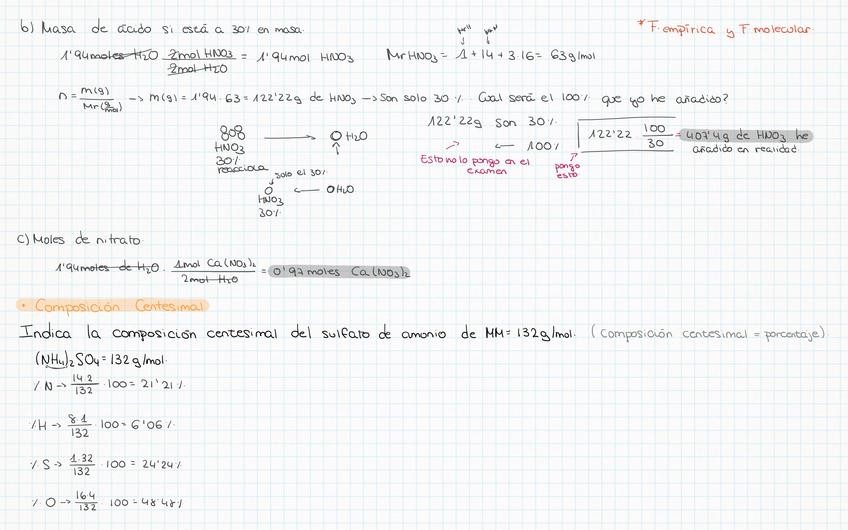 b) Masa de ácido si está a 30% en masa.
* F. empírica y F molecular.
1'94 moles H2O · 2mol HNO3 / 2mol H2O = 1'94mol HNO3
Mr HNO3 = 1 + 14 + 3·16 = 63g/mol
n = m(g) / Mr(g/mol) → m(g) = 1'94 · 63 = 122'22g de HNO3 → Son solo 30%. Cual será el 100% que yo he añadido?
122'22g son 30%.
← 100%
Esto no lo pongo en el examen
pongo esto
122'22 · 100/30 = 407'4g de HNO3 he
añadido en realidad.
HNO3
30%
reacciona
→ H2O
solo el 30%
HNO3 ← H2O
30%
c) Moles de nitrato.
1'94 moles de H2O · 1mol Ca(NO3)2 / 2mol H2O = 0'97 moles Ca(NO3)2
• Composición Centesimal
Indica la composición centesimal del sulfato de amonio de MM= 132g/mol. (composición centesimal = porcentaje)
(NH4)2SO4 = 132g/mol.
% N → 14·2/132 · 100 = 21'21%
% H → 8·1/132 · 100 = 6'06%
% S → 1·32/132 · 100 = 24'24%
% O → 16·4/132 · 100 = 48'48%